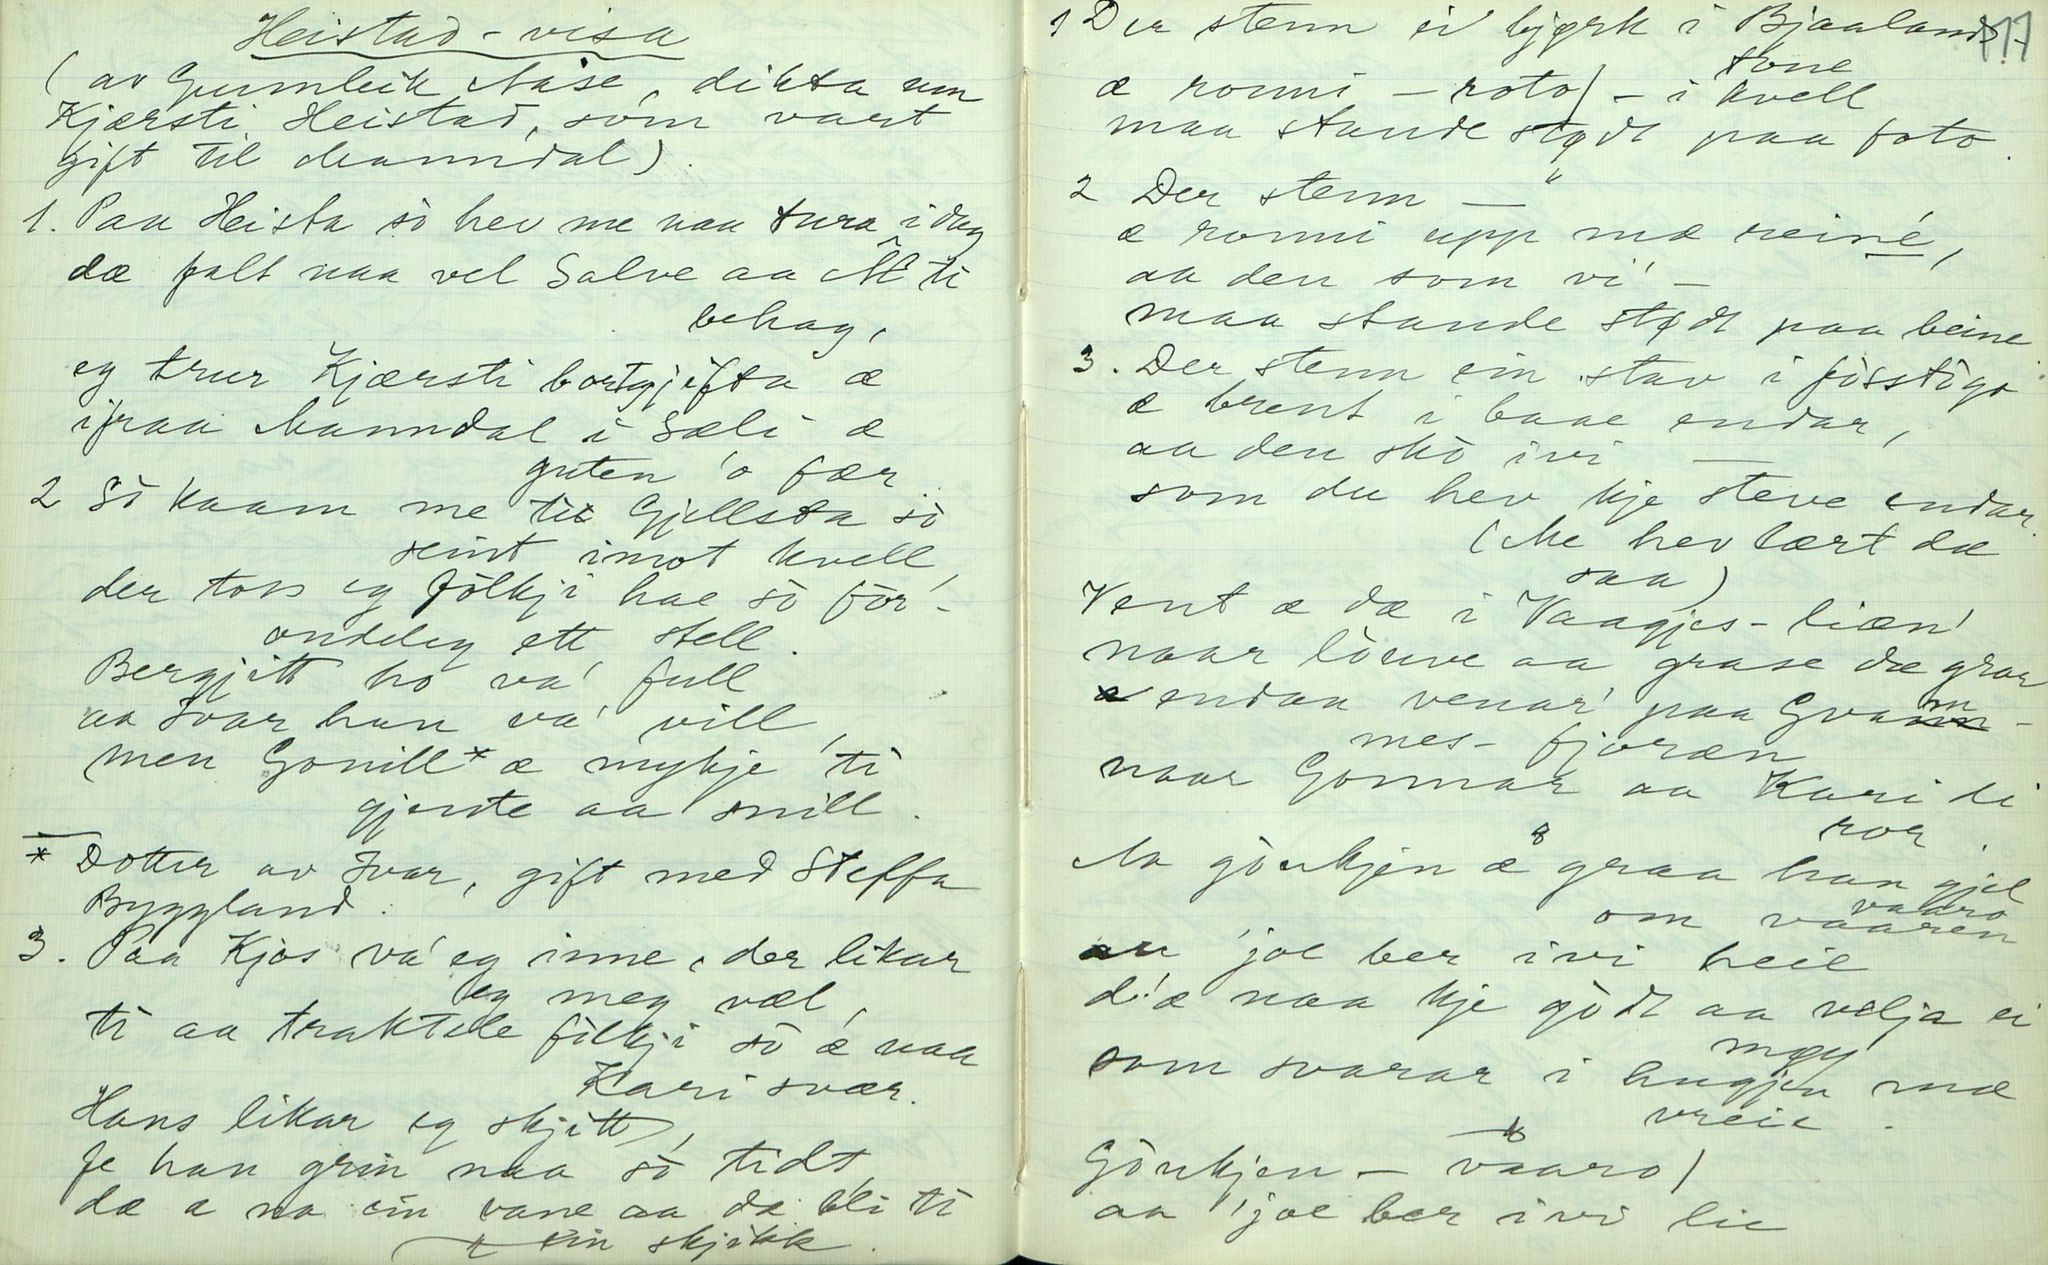 Heistad-visa
(av Gunnleik Aase, dikta um
Kjærsti Heistad, som vart
gift til Manndal).
1. Paa Heista so hev me naa tura i dag
dæ falt naa vel Salve aa M ti
behag,
eg trur Kjærsti bortgjifta æ
ifraa Manndal i Sæli æ
guten 'o fær
2 So kaam me til Gjellsta so
seint imot kvell,
der tots eg folkji hae so for-
ondeleg ett stell.
Bergjitt ho va' full
aa Ivar han va' vill,
men Gonill* æ mykje ti
gjente aa snill.
* Dotter av Ivar, gift med Steffa
Byggland.
3. Paa Kjos va' eg inne, der likar
eg meg væl,
ti aa traktele folkji so æ naa
Kari svær.
Hans likar eg skjitt,
fe han grin naa so tidt,
dæ æ no ein vane aa dæ bli ti
ein skjikk.
177
1 Der stenn ei bjørk i Bjaalands-
tone
æ ronni - roto) - i kvell
maa stande stødt paa foto.
2 Der stenn — "
æ ronni upp mæ reine,
aa den som vi' -
maa stande stødt paa beine
3. Der stenn ein stav i fjosstigo
æ brent i baae endar,
aa den sko ivi —
som du hev kje steve endar.
(Me hev lært dæ
saa)
Vent æ dæ i Vaagjes-liæn'
naar louve aa grase dæ gror
endaa venar' paa Gvam-
mes-fjoræn
naar Gonnar aa Kari di
ror.
Aa goukjen æ graa han gjel
om vaaro
vaaren
aa 'joe ber ivi heie
d'æ naa kje godt aa velja ei
møy
som svarar i hugjen mæ
vreie.
Goukjen - vaaro)
aa 'joe ber ivi lie